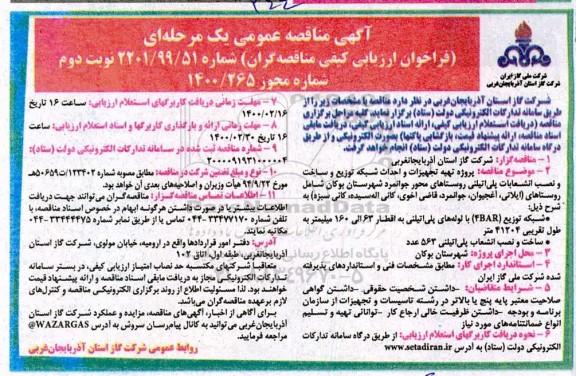 آگهی مناقصه عمومی یک مرحله‌ای
(فراخوان ارزیابی کیفی مناقصه‌گران) شماره ۲۲۰۱/۹۹/۵۱ نوبت دوم
شماره مجوز ۱۴۰۰/۲۶۵
شرکت ملی گاز ایران
شرکت گاز استان آذربایجان‌غربی
شرکت گاز استان آذربایجان‌غربی در نظر دارد مناقصه با مشخصات زیر را از
طریق سامانه تدارکات الکترونیکی دولت (ستاد) برگزار نماید. کلیه مراحل برگزاری
مناقصه (دریافت اسناد ارزیابی کیفی، ارائه اسناد ارزیابی کیفی، دریافت مابقی
اسناد مناقصه، ارائه پیشنهاد قیمت، بازگشایی پاکتها) بصورت الکترونیکی و از طریق
درگاه سامانه تدارکات الکترونیکی دولت (ستاد) انجام خواهد گرفت.
۱- مناقصه‌گزار: شرکت گاز استان آذربایجانغربی
۲- موضوع مناقصه: پروژه تهیه تجهیزات و احداث شبکه توزیع و ساخت
و نصب انشعابات پلی‌اتیلنی روستاهای محور جوانمرد شهرستان بوکان شامل
روستاهای (ایلانی، آغجیوان، جوانمرد، قاضی اخوی، کانی السیده، کانی سیزه) به
شرح ذیل:
*شبکه توزیع (۴BAR) با لوله‌های پلی‌اتیلنی به اقطار ۶۳ الی ۱۶۰ میلیمتر به
طول تقریبی ۴۱۲۰۴ متر
• ساخت و نصب انشعاب پلی‌اتیلنی ۵۶۳ عدد
۳- محل اجرای پروژه: شهرستان بوکان
۴- استاندارد اجرای کار: مطابق مشخصات فنی و استانداردهای پذیرفته
شده شرکت ملی گاز ایران
۵- شرایط متقاضیان: -داشتن شخصیت حقوقی -داشتن گواهی
صلاحیت معتبر پایه پنج یا بالاتر در رشته تاسیسات و تجهیزات از سازمان
برنامه و بودجه -داشتن ظرفیت خالی ارجاع کار -توانائی تهیه و تسلیم
انواع ضمانتنامه‌های مورد نیاز
۶- نحوه دریافت کاربرگهای استعلام ارزیابی: از طریق درگاه سامانه تدارکات
الکترونیکی دولت (ستاد) به آدرس www.setadiran.ir
۷- مهلت زمانی دریافت کاربرگهای استعلام ارزیابی: ساعت ۱۶ تاریخ
۱۴۰۰/۰۲/۱۶
۸- مهلت زمانی ارائه و بارگذاری کاربرگها و اسناد استعلام ارزیابی: ساعت
۱۶ تاریخ ۱۴۰۰/۰۲/۳۰
۹- شماره مناقصه ثبت شده در سامانه تدارکات الکترونیکی دولت (ستاد):
۲۰۰۰۰۹۱۹۳۱۰۰۰۰۰۴
۱۰- نوع و مبلغ تضمین شرکت در مناقصه: مطابق مصوبه شماره ۱۲۳۴۰۲/ت۵۰۶۵۹ه
مورخ ۹۴/۹/۲۲ هیأت وزیران و اصلاحیه‌های بعدی آن خواهد بود.
۱۱- اطلاعات تماس مناقصه‌گزار: مناقصه‌گران می‌توانند جهت دریافت
اطلاعات بیشتر یا در صورت داشتن هرگونه ابهام در خصوص اسناد مناقصه، با
تلفن شماره ۳۳۴۷۷۱۷۰-۰۴۴ تماس یا از طریق نمابر شماره ۳۳۴۴۴۴۷۵-۰۴۴
مکاتبه نمایند.
آدرس: دفتر امور قراردادها واقع در ارومیه، خیابان مولوی، شرکت گاز استان
آذربایجانغربی، طبقه اول، اتاق ۱۰۲
متعاقبا شرکتهای مکتسبه حد نصاب امتیاز ارزیابی کیفی، در بستر سامانه
تدارکات الکترونیکی مجاز به دریافت مابقی اسناد مناقصه و ارائه پیشنهاد قیمت
خواهند بود. لذا مسئولیت اطلاع از روند برگزاری الکترونیکی مناقصه و کنترل‌های
لازم بر عهده مناقصه‌گران می‌باشد.
برای آگاهی از اخبار، آگهی‌های مناقصه، مزایده و عملکرد شرکت گاز استان
آذربایجان‌غربی می‌توانید به کانال پیام‌رسان سروش به آدرس WAZARGAS@
مراجعه فرمایید.
روابط عمومی شرکت گاز استان آذربایجان‌غربی